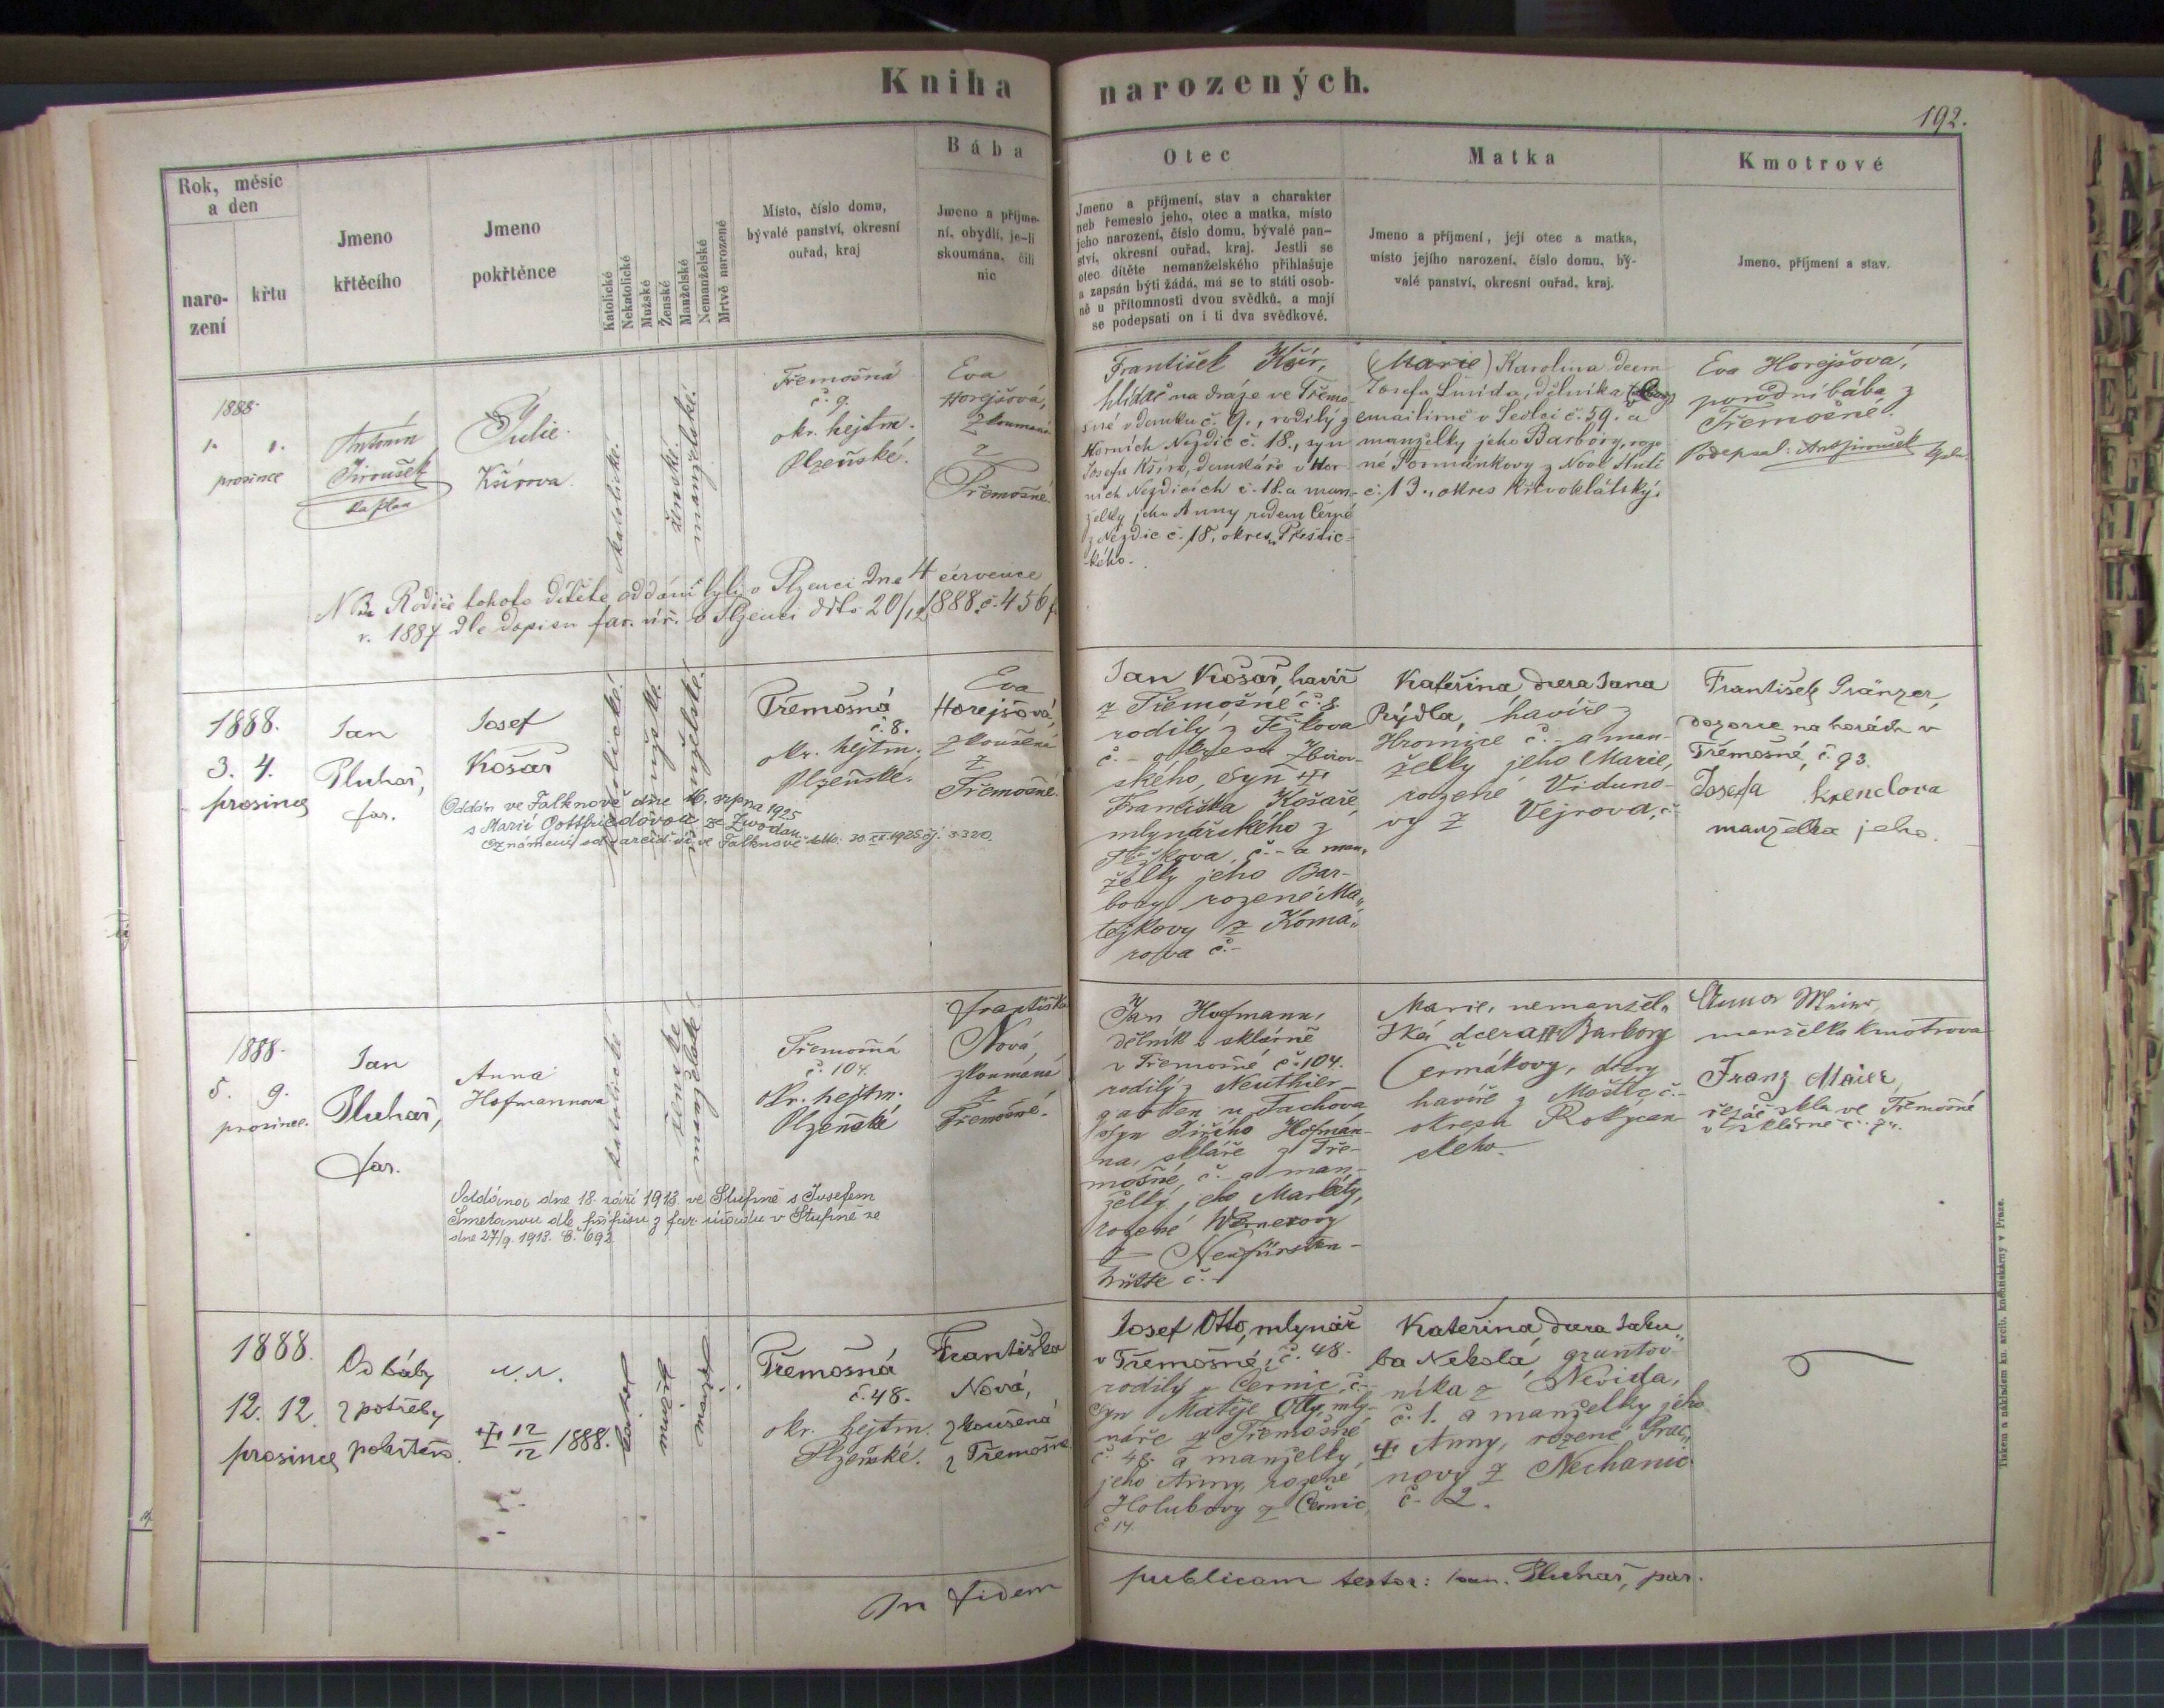 Kniha narozených.
192.
Rok, měsíc
a den
naro-
zení
křtu
Jmeno
křtěcího
Jmeno
pokřtěnce
Katolické
Nekatolické
Mužské
Ženské
Manželské
Nemanželské
Mrtvě narozené
Místo, číslo domu,
bývalé panství, okresní
ouřad, kraj
Bába
Jmeno a příjme-
ní, obydlí, je-li
skoumána, čili
nic
Otec
Jmeno a příjmení, stav a charakter
neb řemeslo jeho, otec a matka, místo
jeho narození, číslo domu, bývalé pan-
ství, okresní ouřad, kraj. Jestli se
otec dítěte nemanželského přihlašuje
a zapsán býti žádá, má se to státi osob-
ně u přítomnosti dvou svědků, a mají
se podepsati on i ti dva svědkové.
Matka
Jmeno a příjmení, její otec a matka,
místo jejího narození, číslo domu, bý-
valé panství, okresní ouřad, kraj.
Kmotrové
Jmeno, příjmení a stav.
1888.
1. 1.
prosince
Antonín
Jiroušek
kaplan
Julie
Kšírova
katolické.
ženské.
manželské.
Třemošná
č. 9.
okr. hejtm.
Plzeňské.
Eva
Horejšová,
zkoumaná
z
Třemošné.
František Kšír,
hlídač na dráze ve Třemo-
šné v domku č. 9., rodilý z
Horních Nezdic č. 18., syn
Josefa Kšíra, domkáře v Hor-
ních Nezdicích č. 18. a man-
želky jeho Anny rodem Černé
z Nezdic č. 18, okresu Přeštic-
kého.
(Marie) Karolina dcera
Josefa Šmída, dělníka
emailirně v Sedlci č. 59. a
manželky jeho Barbory, roze-
né Formánkovy z Nové Huti
č. 13., okres Křivoklátský.
Eva Horejšová,
porodní bába z
Třemošné.
Podepsal: Ant. Jiroušek
NB. Rodiče tohoto dítěte oddáni byli v Plzenci dne 4 července
r. 1887 dle dopisu far. úř. v Plzenci ddto 20/12 1888. č. 456
1888.
3. 4.
prosince
Jan
Pluhař,
far.
Josef
Košař
katolické.
mužské.
manželské.
Třemošná
č. 8.
okr. hejtm.
Plzeňské.
Eva
Horejšová,
zkoušená
z
Třemošné.
Jan Košař, havíř
z Třemošné č. 8.
rodilý z Těškova
č. - okresu Zbirov-
ského, syn †
Františka Košaře
mlynářského z
Těškova, č. - a man-
želky jeho Bar-
bory rozené Ma-
tejkovy z Koma-
rova č. -
Kateřina, dcera Jana
Rýdla, havíře z
Hromice č. - a man-
želky jeho Marie,
rozené Viduno-
vy z Vejrova, č.
František Pränzer,
dozorce na horách v
Třemošné, č. 93.
Josefa Krendlova
manželka jeho.
Oddán ve Falknově dne 16. srpna 1925
s Marií Gottfriedovou ze Zwodau.
Oznámení od arcid. úř. ve Falknově ddto. 30. XI. 1925 čj. 3320.
1888.
5. 9.
prosince.
Jan
Pluhař,
far.
Anna
Hofmannova
katolické
ženské
manželské
Třemošná
č. 104.
okr. hejtm.
Plzeňské
Františka
Nová
zkoumána
z
Třemošné.
Jan Hofmann,
dělník v sklárně
v Třemošné č. 104.
rodilý z Neuthier-
garten u Tachova
syn Jiřího Hofman-
na, skláře z Tře-
mošné, č. - a man-
želky jeho Markéty,
rozené Wernerovy
z Neufürsten-
hütte č. -
Marie, nemanžel-
ská dcera † Barbory
Čermákovy, dcery
havíře z Moštic č. -
okresu Rokycan-
skeho
Anna Maier
manželka kmotrova
Franz Maier,
řezáč skla ve Třemošné
v sklárně
Oddána dne 18. září 1913 ve Stupně s Josefem
Smetanou dle přípisu z far. úřadu v Stupně ze
dne 27/9. 1913. č. 692
1888.
12. 12.
prosince
Od báby
z potřeby
pokřtěno.
N. N.
† 12/12 1888.
katol
mužsk
manžel
Třemošná
č. 48.
okr. hejtm.
Plzeňské.
Františka
Nová,
zkoušená
z Třemošné
Josef Otto, mlynář
v Třemošné, č. 48.
rodilý z Černic, č. -
syn Matěje Otty, mly-
náře z Třemošné
č. 48. a manželky
jeho Anny, rozené
Holubovy z Černic,
č. 14.
Kateřina, dcera Jaku-
ba Nekola, gruntov-
níka z Nevida,
č. 1. a manželky jeho
† Anny, rozené Prac-
novy z Nechanic
č. 2.
In fidem publicam testor: Joan. Pluhař, par.
Tiskem a nákladem kn. arcib. kněhtiskárny v Praze.